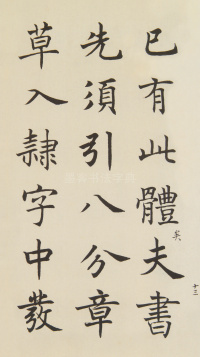 已有此體矣夫書
先須引八分章
草入隸字中發
十三